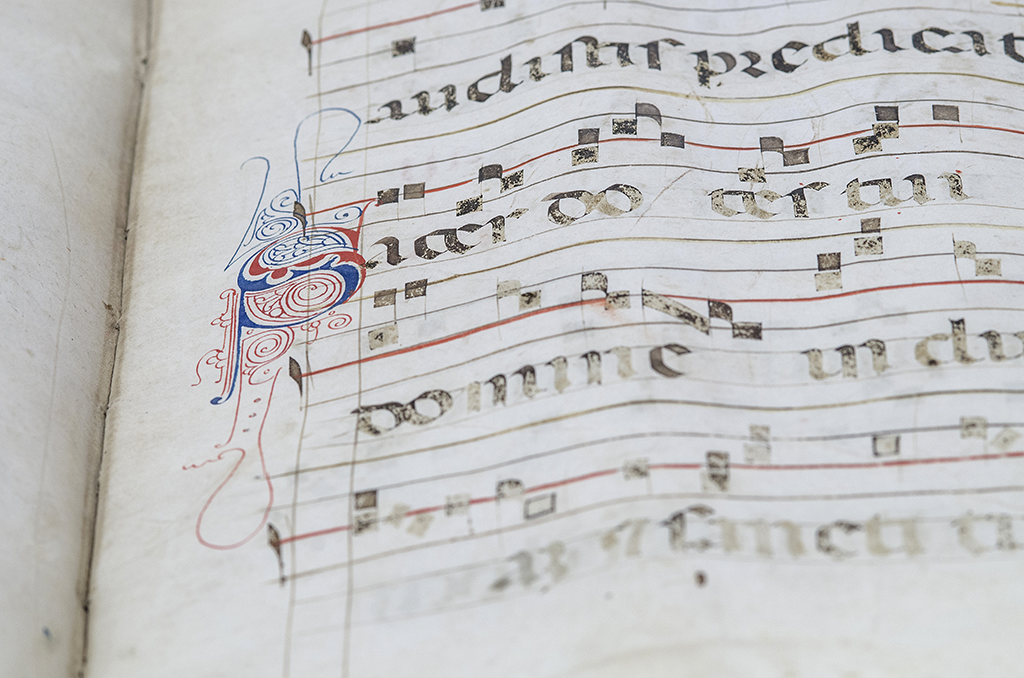 audistis predicat
Sacer do tes tui
domine in du
sancti tu